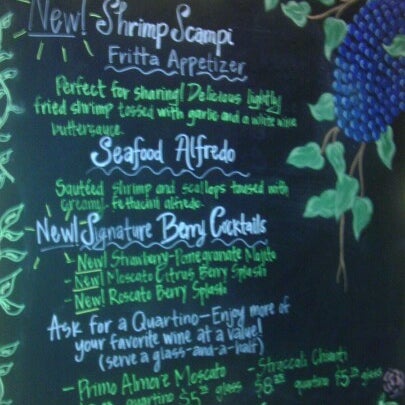 New! Shrimp Scampi
Fritta Appetizer
Perfect for sharing! Delicious lightly
fried shrimp tossed with garlic and a white wine
buttersauce.
Seafood Alfredo
Sautéed shrimp and scallops tossed with
creamy fettucini alfredo.
New! Signature Berry Cocktails
- New! Strawberry-Pomegranate Mojito
- New! Moscato Citrus Berry Splash
- New! Roscato Berry Splash
Ask for a Quartino-Enjoy more of
your favorite wine at a value!
(serve a glass-and-a-half)
- Primo Almore Moscato - Straccali Chianti
quartino $5 glass $8 quartino $5.25 glass